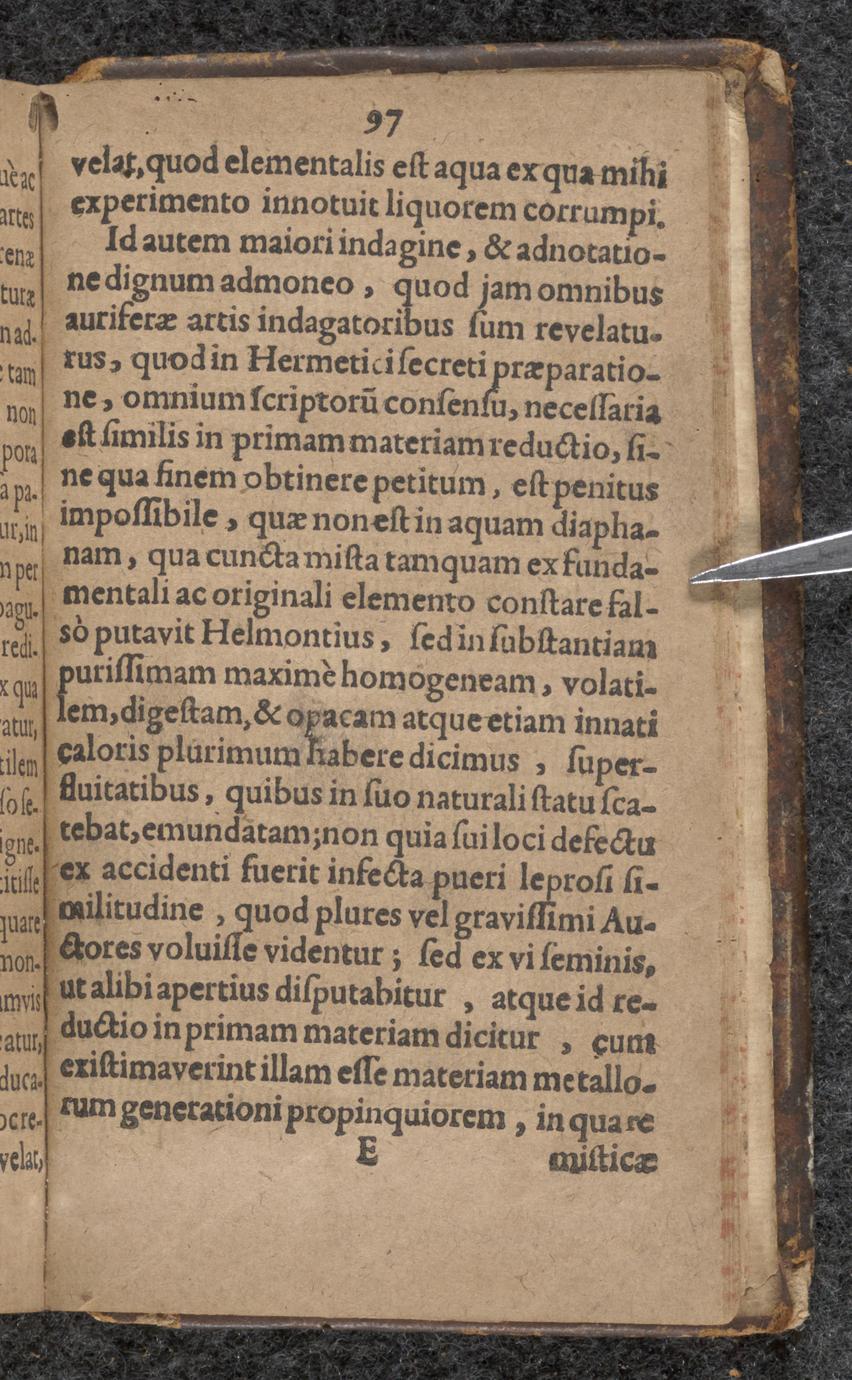 97
velat, quod elementalis eſt aqua ex qua mihi
experimento innotuit liquorem corrumpi.
Id autem maiori indagine, & adnotatio-
ne dignum admoneo, quod jam omnibus
auriferæ artis indagatoribus ſum revelatu-
rus, quod in Hermetici ſecreti præparatio-
ne, omnium ſcriptorū conſenſu, neceſſaria
eſt ſimilis in primam materiam reductio, ſi-
ne qua finem obtinere petitum, eſt penitus
impoſſibile, quæ non eſt in aquam diapha-
nam, qua cuncta miſta tamquam ex funda-
mentali ac originali elemento conſtare fal-
sò putavit Helmontius, ſed in ſubſtantiam
puriſſimam maximè homogeneam, volati-
lem, digeſtam, & opacam atque etiam innati
caloris plurimum habere dicimus, ſuper-
fluitatibus, quibus in ſuo naturali ſtatu ſca-
tebat, emundatam; non quia ſui loci defectu
ex accidenti fuerit infecta pueri leproſi ſi-
militudine, quod plures vel graviſſimi Au-
ctores voluiſſe videntur; ſed ex vi ſeminis,
ut alibi apertius diſputabitur, atque id re-
ductio in primam materiam dicitur, cum
exiſtimaverint illam eſſe materiam metallo-
rum generationi propinquiorem, in qua re
E miſticæ